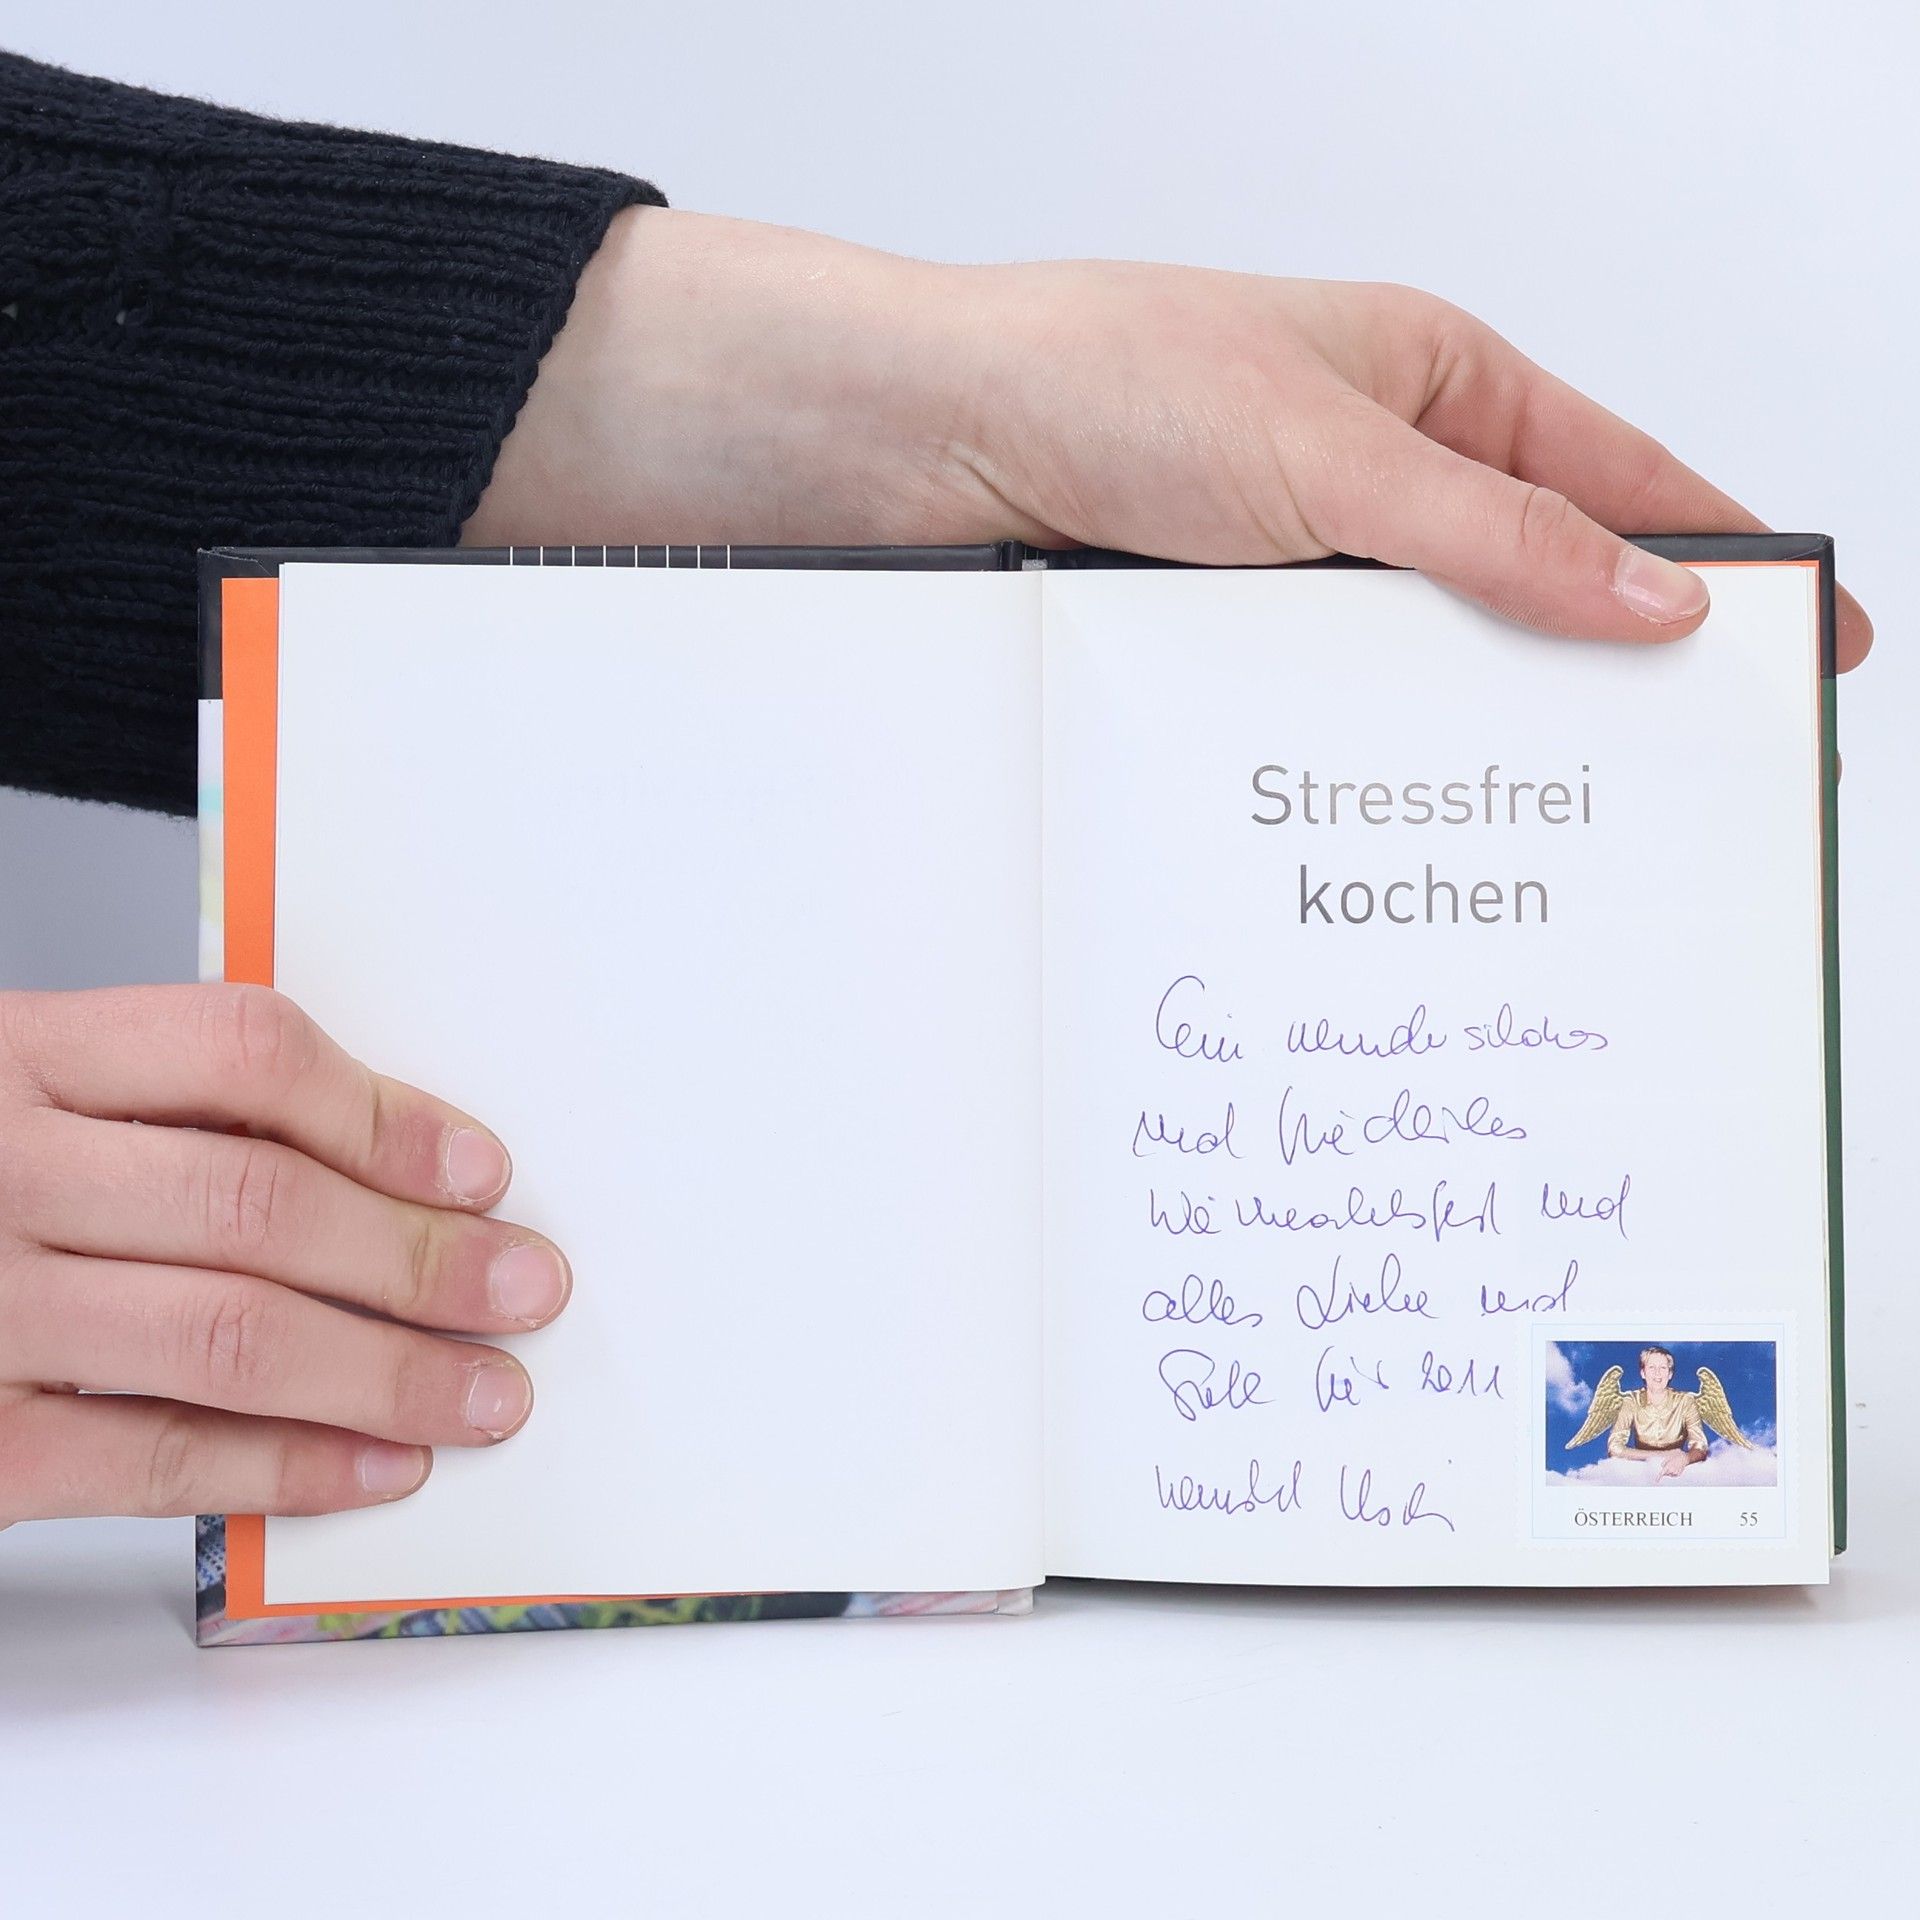 Stressfrei
kochen
Ein wunderschönes
und friedliches
Weihnachtsfest und
alles Liebe und
Gute für 2011
Uschi
ÖSTERREICH 55